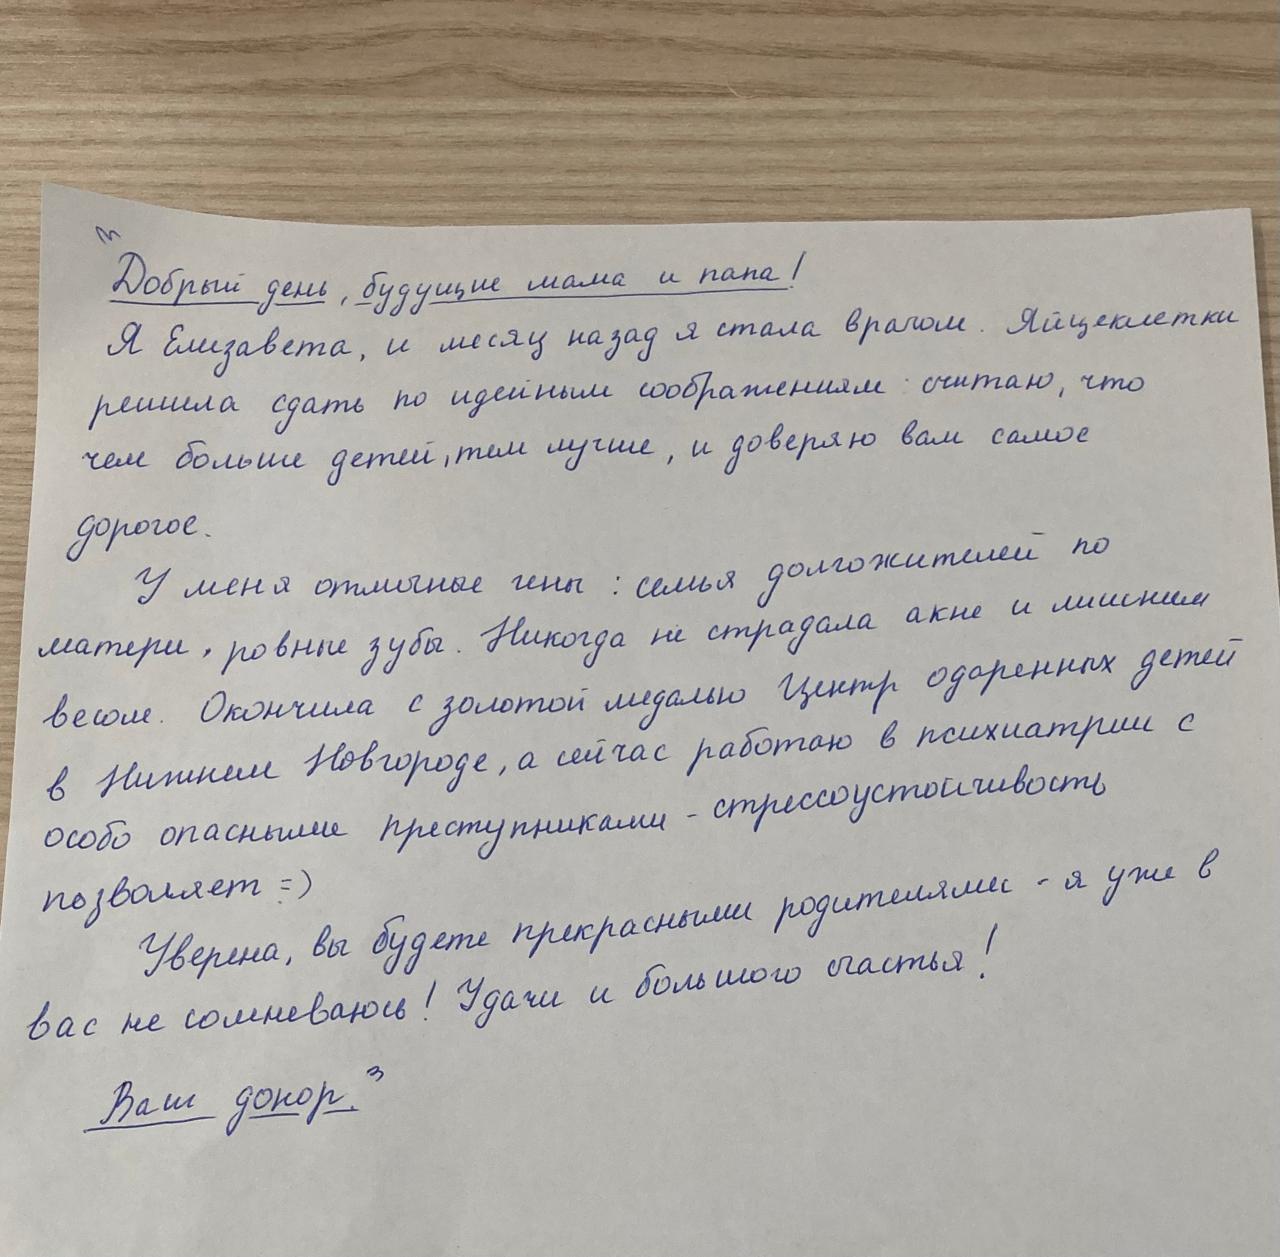 Добрый день, будущие мама и папа!
Я Елизавета, и месяц назад я стала врачом. Яйцеклетки
решила сдать по идейным соображениям: считаю, что
чем больше детей, тем лучше, и доверяю вам самое
дорогое.
У меня отличные гены: семья долгожителей по
матери, ровные зубы. Никогда не страдала акне и лишним
весом. Окончила с золотой медалью Центр одаренных детей
в Нижнем Новгороде, а сейчас работаю в психиатрии с
особо опасными преступниками - стрессоустойчивость
позволяет =)
Уверена, вы будете прекрасными родителями - я уже в
вас не сомневаюсь! Удачи и большого счастья!
Ваш донор.